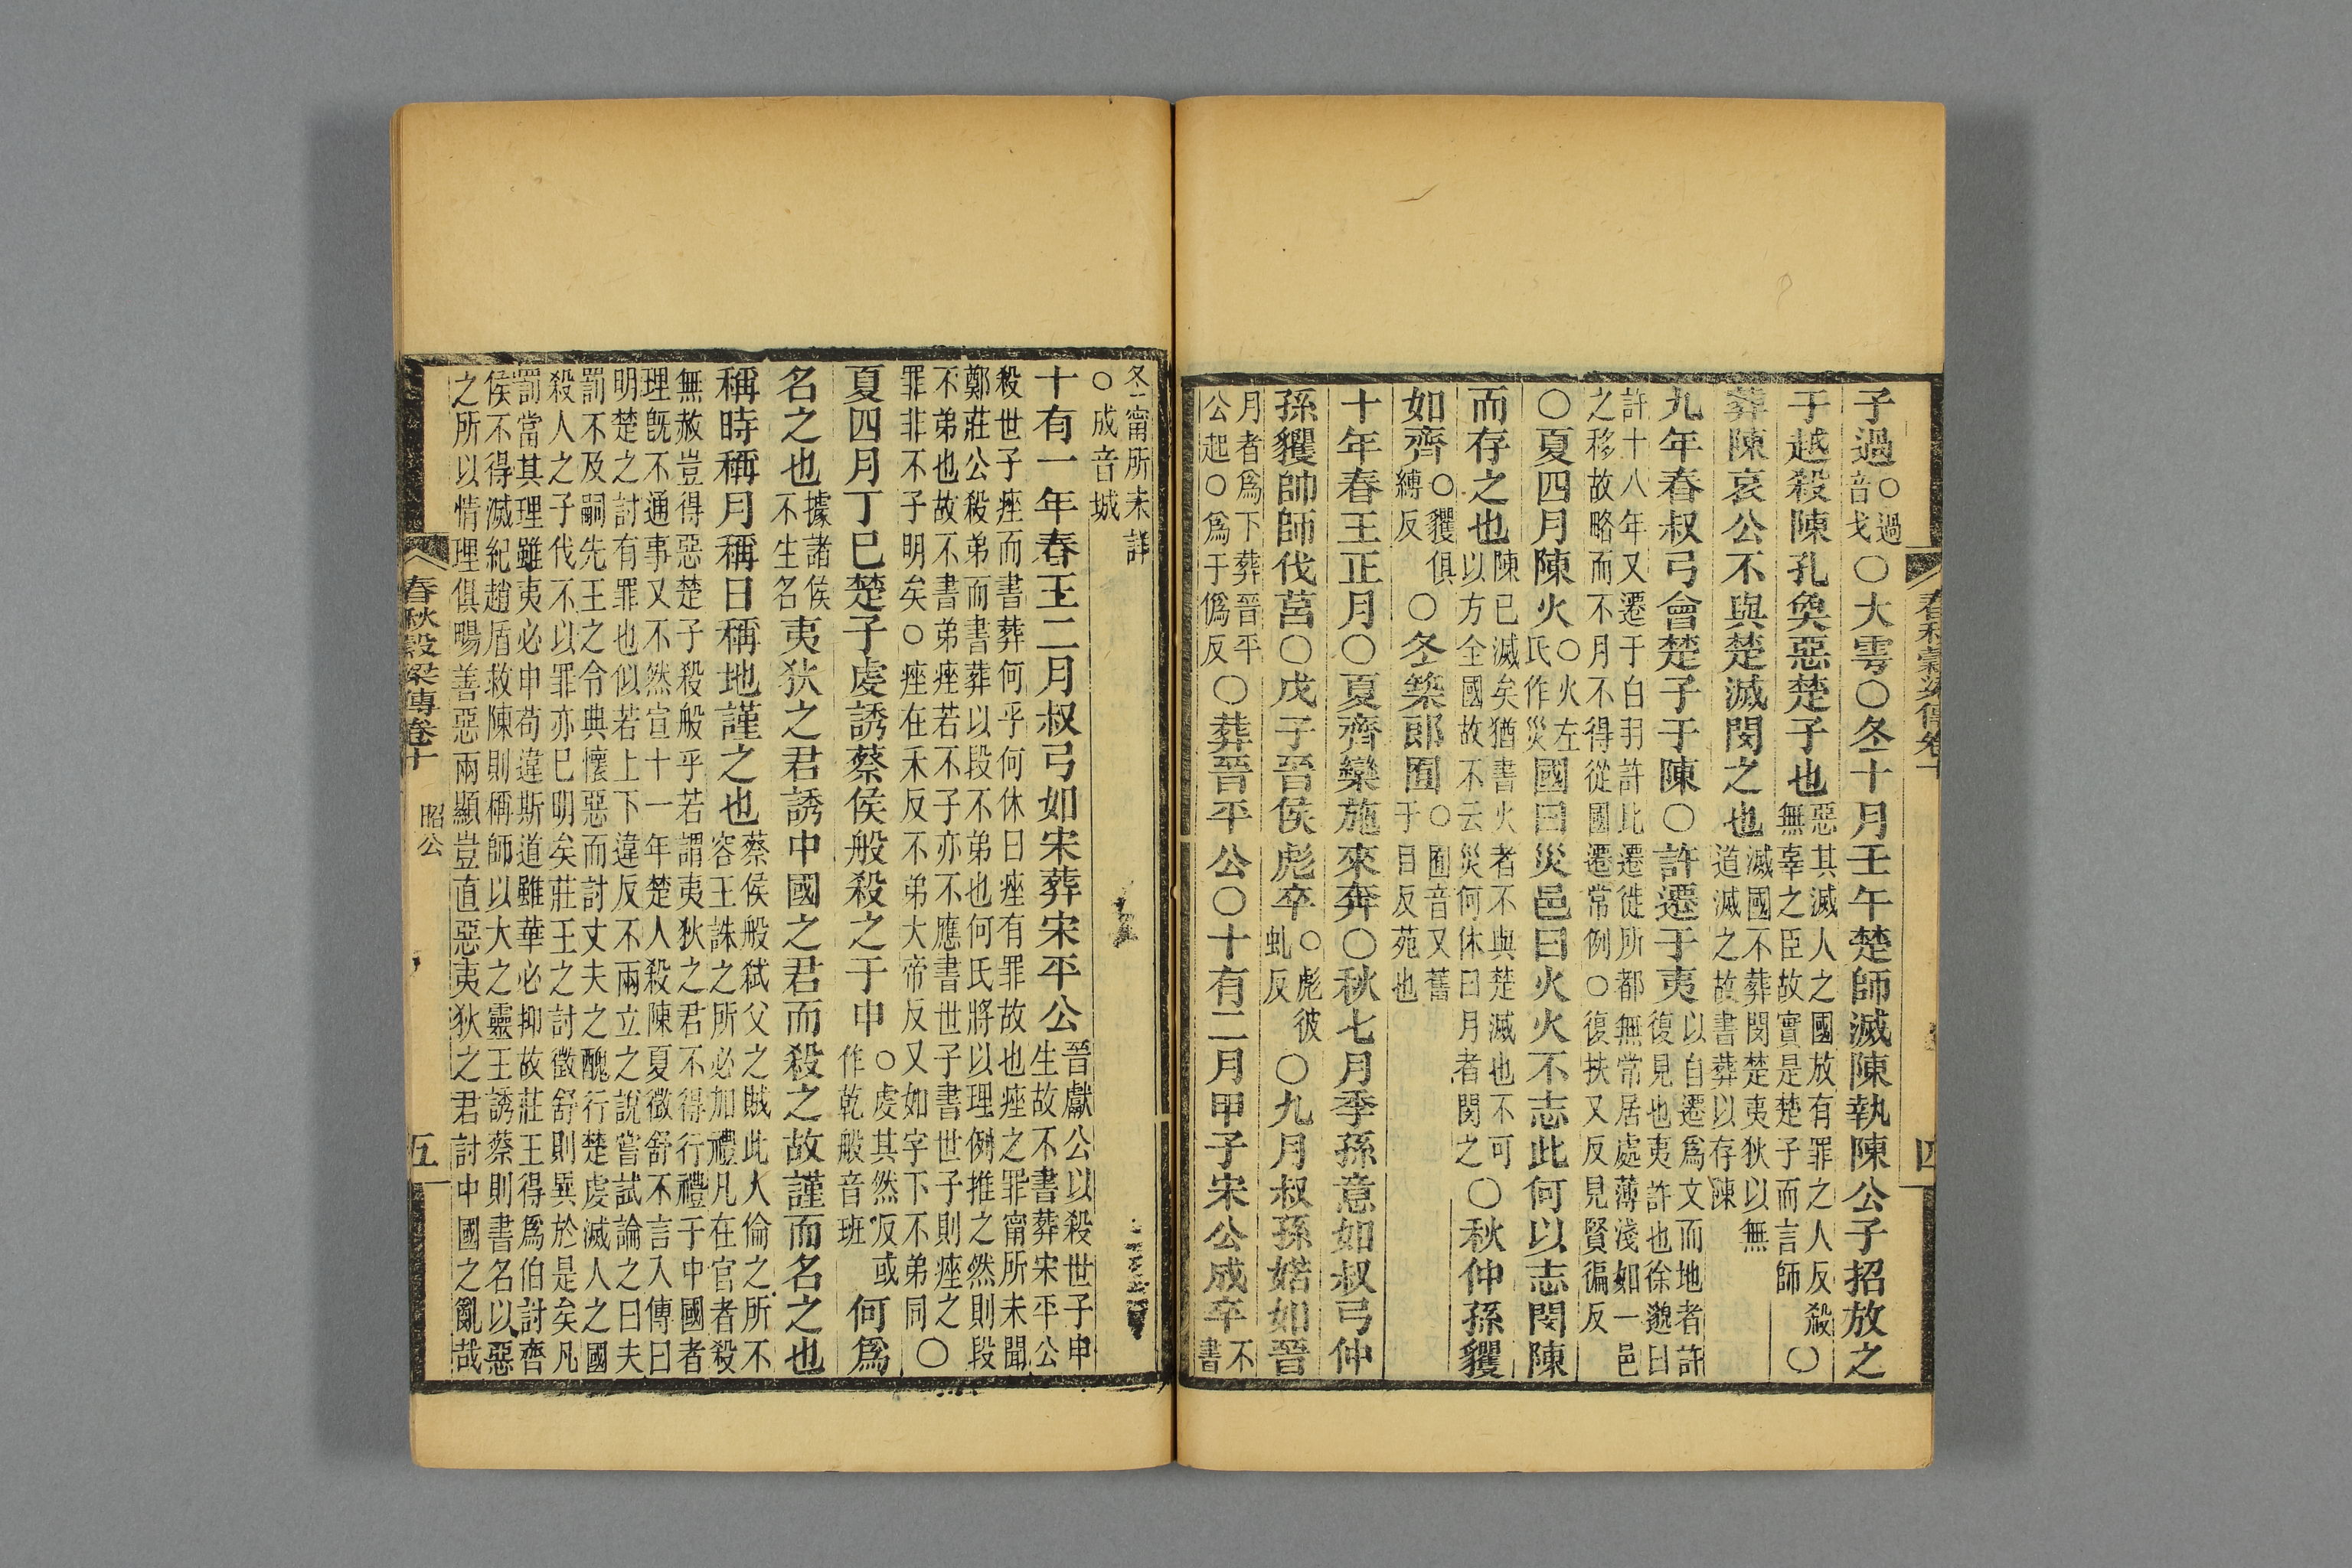 春秋穀梁傳卷十
四
子過○過音戈○大雩○冬十月壬午楚師滅陳執陳公子招放之
于越殺陳孔奐惡楚子也惡其滅人之國放有罪之人反殺無辜之臣故實是楚子而言師○
葬陳哀公不與楚滅閔之也滅國不葬閔楚夷狄以無道滅之故書葬以存陳
九年春叔弓會楚子于陳○許遷于夷以自遷爲文而地者許復見也夷許也徐邈曰
許十八年又遷于白羽許此遷徙所都無常居處薄淺如一邑之移故略而不月不得從國遷常例○復扶又反見賢徧反
○夏四月陳火○火左氏作災國曰災邑曰火火不志此何以志閔陳
而存之也陳已滅矣猶書火者不與楚滅也不可以方全國故不云災何休曰月者閔之○秋仲孫貜
如齊○貜俱縛反○冬築郎囿○囿音又舊于目反苑也
十年春王正月○夏齊欒施來奔○秋七月季孫意如叔弓仲
孫貜帥師伐莒○戊子晉侯彪卒○彪彼虯反○九月叔孫婼如晉
月者爲下葬晉平公起○爲于僞反○葬晉平公○十有二月甲子宋公成卒不書
冬甯所未詳○成音城
十有一年春王二月叔弓如宋葬宋平公晉獻公以殺世子申生故不書葬宋平公
殺世子痤而書葬何乎何休曰痤有罪故也痤之罪甯所未聞鄭莊公殺弟而書葬以段不弟也何氏將以理例推之然則段
不弟也故不書弟痤若不子亦不應書世子書世子則痤之罪非不子明矣○痤在禾反不弟大帝反又如字下不弟同○
夏四月丁巳楚子虔誘蔡侯般殺之于申○虔其然反或作乾般音班何爲
名之也據諸侯不生名夷狄之君誘中國之君而殺之故謹而名之也
稱時稱月稱日稱地謹之也蔡侯般弒父之賊此人倫之所不容王誅之所必加禮凡在官者殺
無赦豈得惡楚子殺般乎若謂夷狄之君不得行禮于中國者理旣不通事又不然宣十一年楚人殺陳夏徵舒不言入傳曰
明楚之討有罪也似若上下違反不兩立之說嘗試論之曰夫罰不及嗣先王之令典懷惡而討丈夫之醜行楚虔滅人之國
殺人之子伐不以罪亦已明矣莊王之討徵舒則異於是矣凡罰當其理雖夷必申苟違斯道雖華必抑故莊王得爲伯討齊
侯不得滅紀趙盾救陳則稱師以大之靈王誘蔡則書名以惡之所以情理俱暢善惡兩顯豈直惡夷狄之君討中國之亂哉
春秋穀梁傳卷十
昭公
五